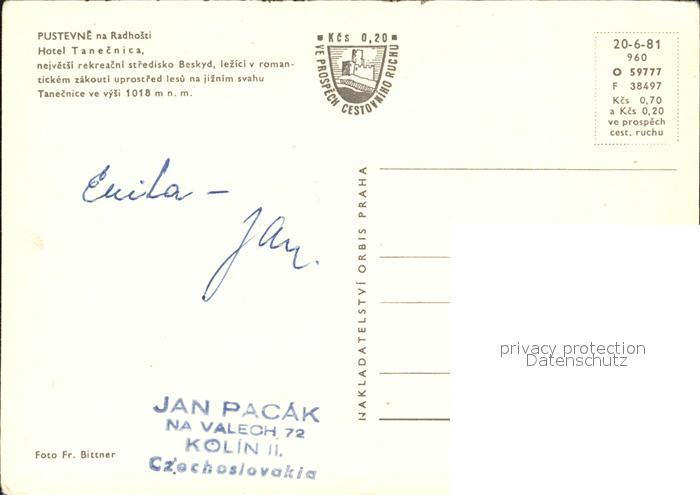 PUSTEVNĚ na Radhošti
Hotel Tanečnica,
největší rekreační středisko Beskyd, ležící v roman-
tickém zákoutí uprostřed lesů na jižním svahu
Tanečnice ve výši 1018 m n. m.
Kčs 0,20
VE PROSPĚCH CESTOVNÍHO RUCHU
20-6-81
960
O 59777
F 38497
Kčs 0,70
a Kčs 0,20
ve prospěch
cest. ruchu
Jan.
NAKLADATELSTVÍ ORBIS PRAHA
privacy protection
Datenschutz
JAN PACÁK
NA VALECH 72
KOLÍN II.
Czechoslovakia
Foto Fr. Bittner